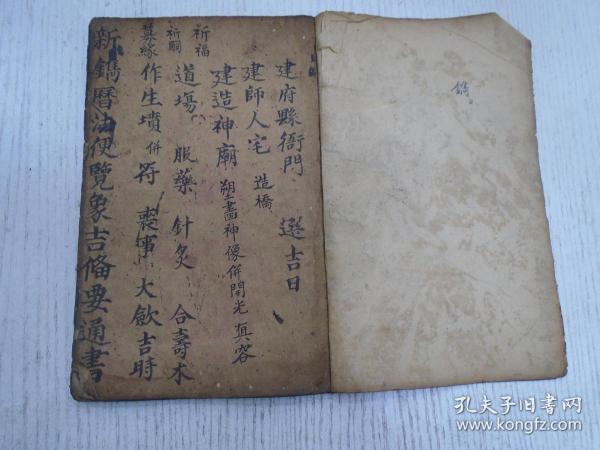 建府縣衙門 選吉日
建師人宅 造橋
建造神廟 塑畫神像併開光 真容
祈福
祈嗣
道塲 服藥 針灸 合壽木
作生墳 併符 喪事 大斂吉時
新鐫曆法便覽象吉偹要通書
鐫
孔夫子旧书网
www.kongfz.com